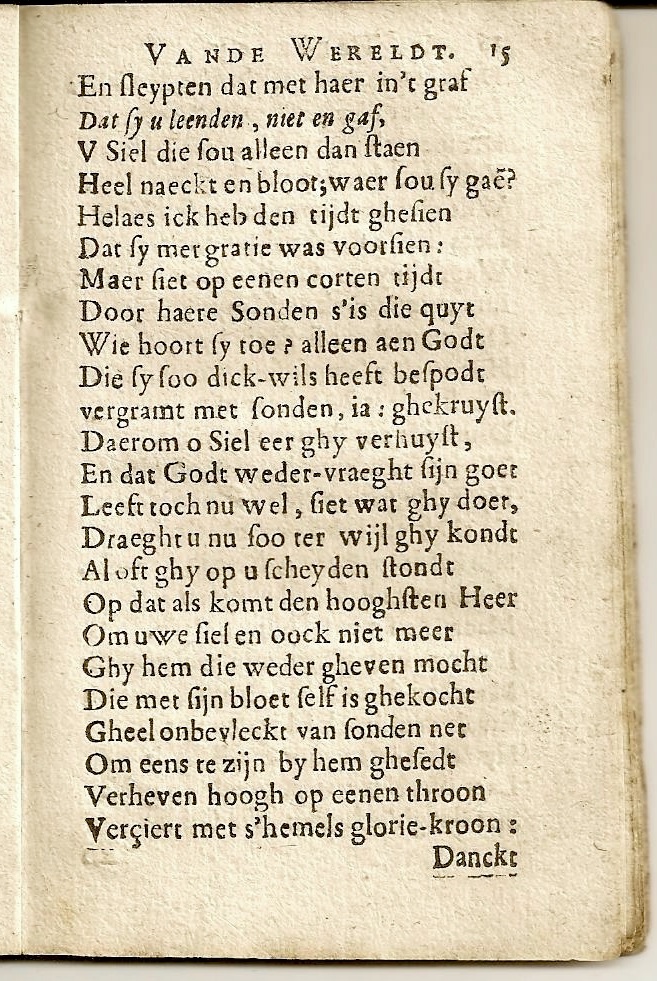 VANDE WERELDT. 15
En ſleypten dat met haer in't graf
Dat ſy u leenden, niet en gaf,
V Siel die ſou alleen dan ſtaen
Heel naeckt en bloot; waer ſou ſy gaē?
Helaes ick heb den tijdt gheſien
Dat ſy met gratie was voorſien:
Maer ſiet op eenen corten tijdt
Door haere Sonden s'is die quyt
Wie hoort ſy toe? alleen aen Godt
Die ſy ſoo dick-wils heeft beſpodt
vergramt met ſonden, ia: ghekruyſt.
Daerom o Siel eer ghy verhuyſt,
En dat Godt weder-vraeght ſijn goet
Leeft toch nu wel, ſiet wat ghy doet,
Draeght u nu ſoo ter wijl ghy kondt
Al oft ghy op u ſcheyden ſtondt
Op dat als komt den hooghſten Heer
Om uwe ſiel en oock niet meer
Ghy hem die weder gheven mocht
Die met ſijn bloet ſelf is ghekocht
Gheel onbevleckt van ſonden net
Om eens te zijn by hem gheſedt
Verheven hoogh op eenen throon
Verçiert met s'hemels glorie-kroon:
Danckt